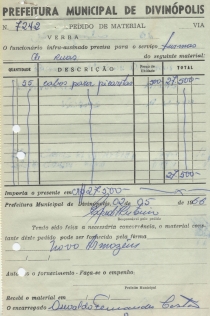 PREFEITURA MUNICIPAL DE DIVINÓPOLIS
N. 7242 PEDIDO DE MATERIAL VIA
VERBA
O funcionário infra-assinado precisa para o serviço
de ruas do seguinte material:
QUANTIDADE DESCRIÇÃO TOTAL
55 cabos para picaretas 500 27.500
Importa o presente em 27.500
Prefeitura Municipal de Divinópolis, 02 05
Tendo sido feita a necessária concorrência, o material constante
deste pedido pode ser fornecido pela firma
Novo Armazém
o fornecimento - Faça-se o empenho.
Prefeito Municipal
Recebi o material em
O encarregado Osvaldo Fernandes Costa